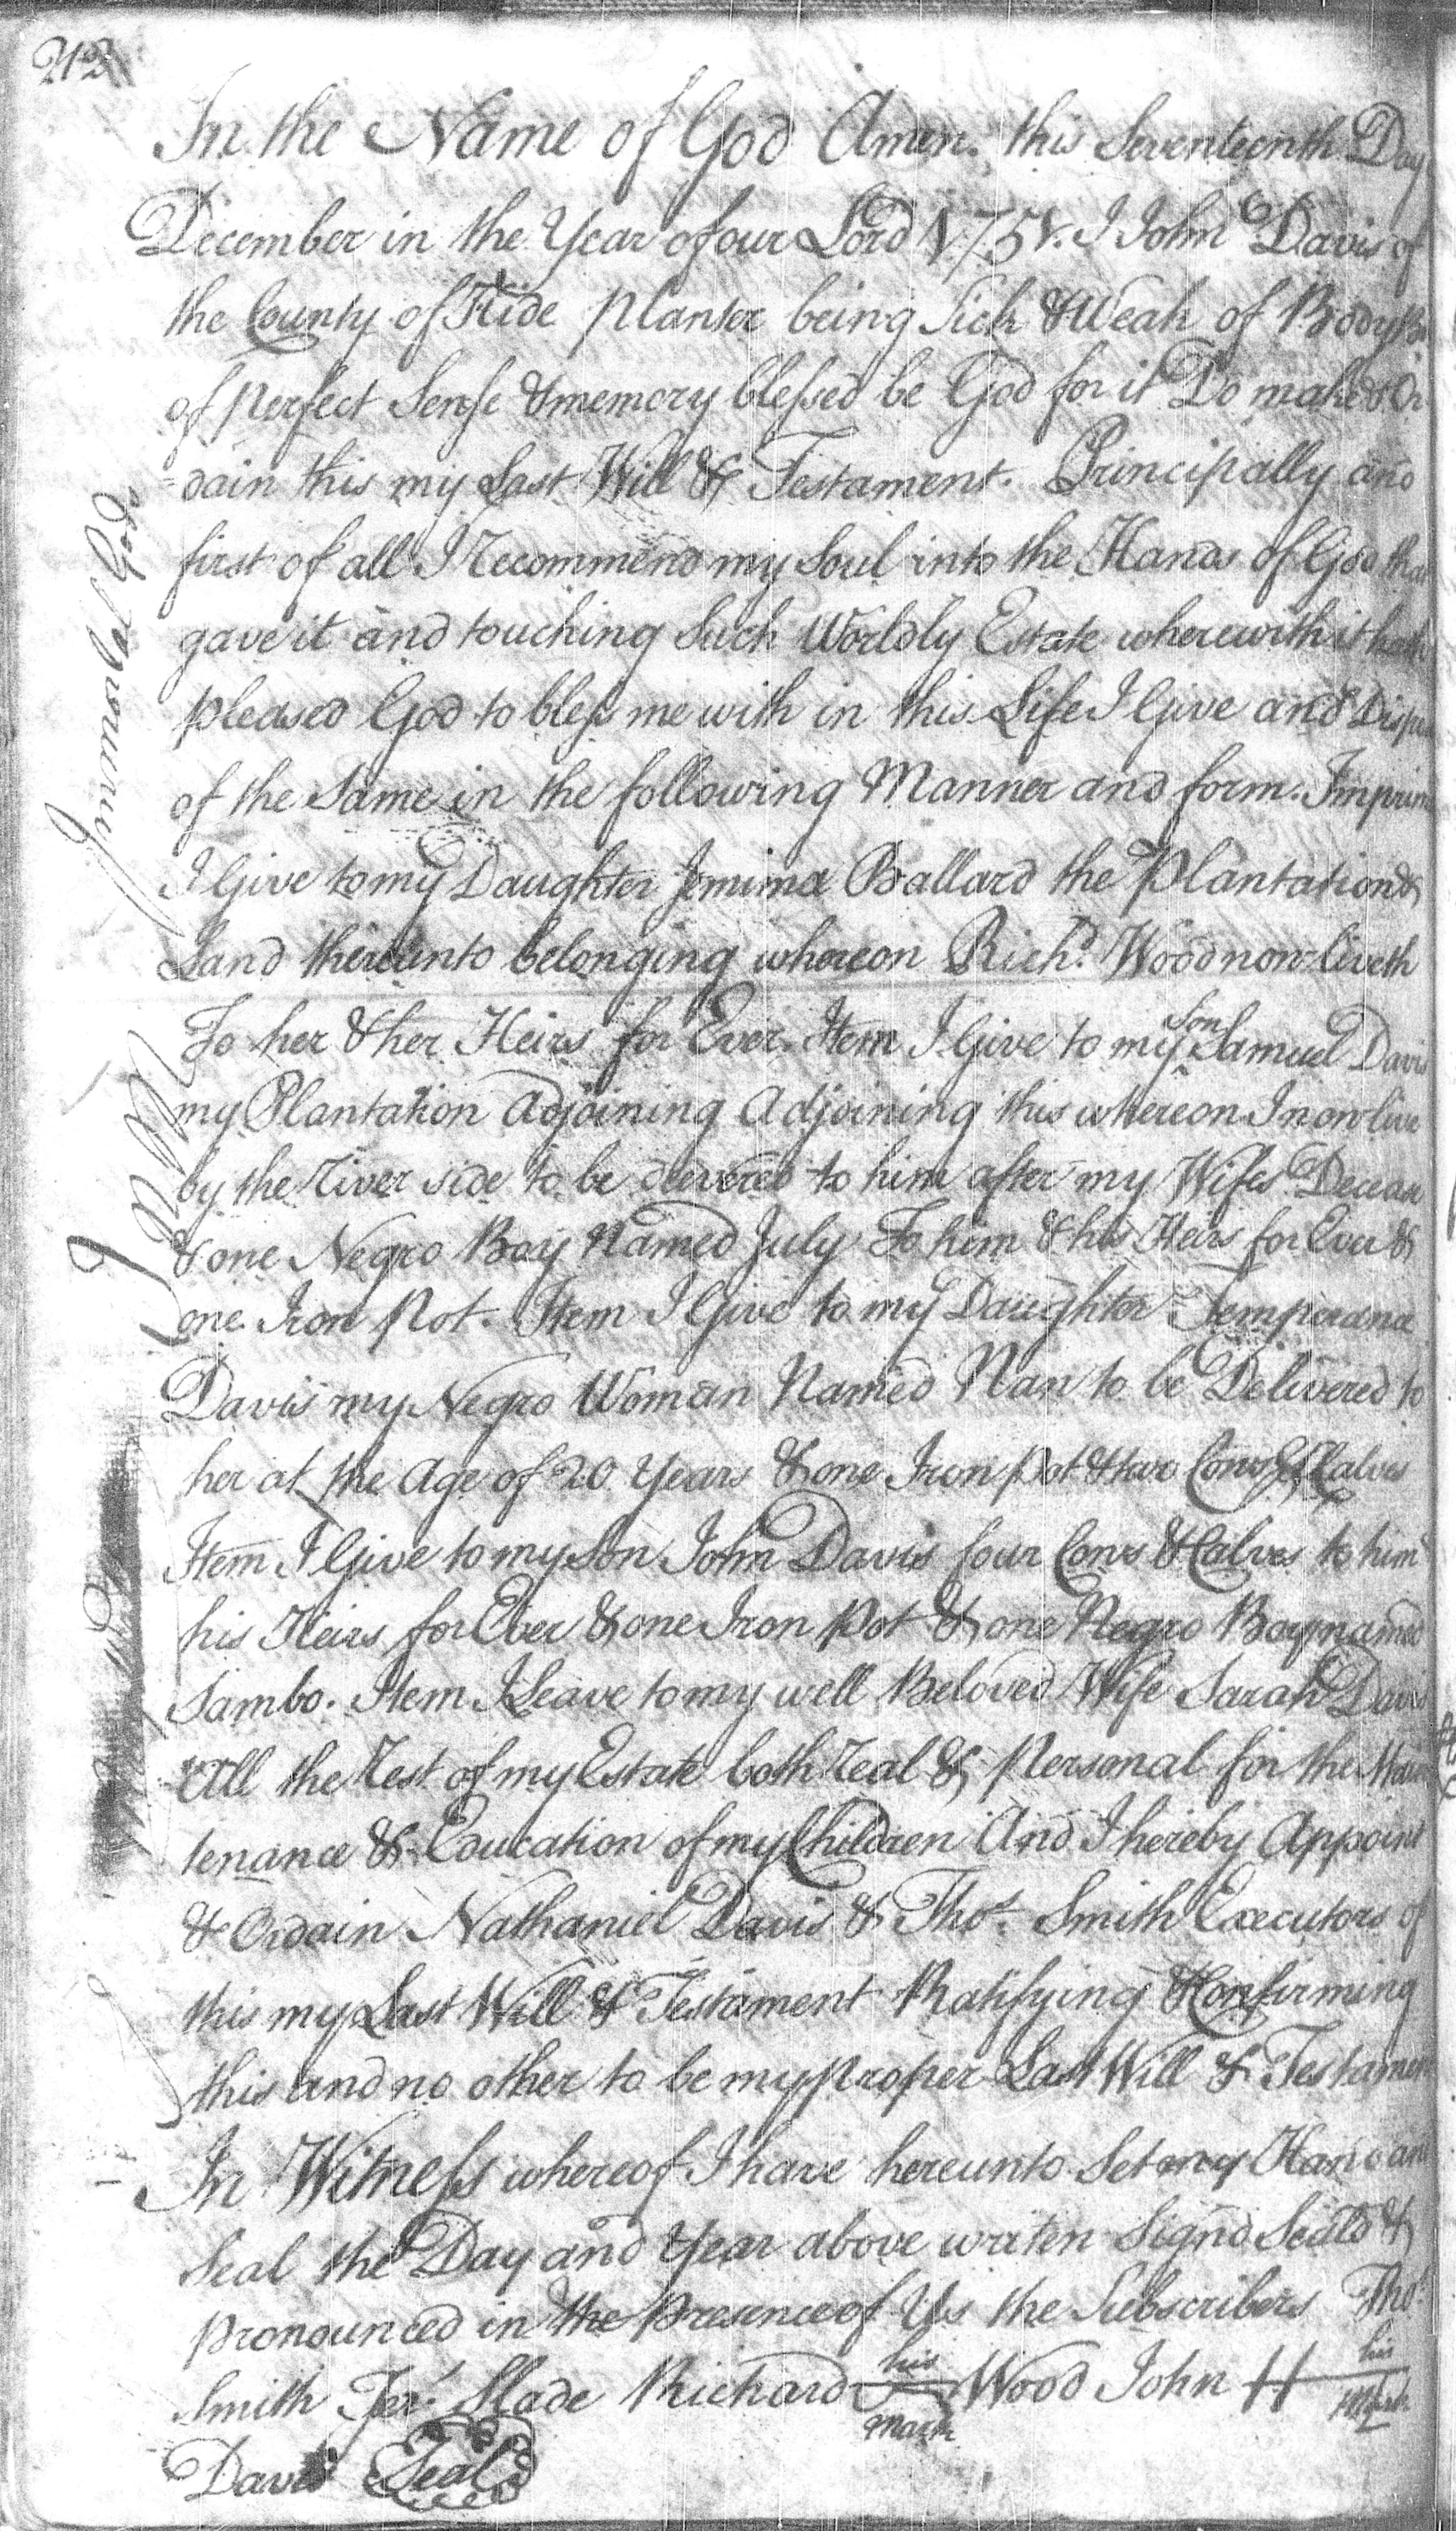 In the Name of God Amen. this Seventeenth Day
December in the Year of our Lord 1751. I John Davis of
the County of Hide planter being Sick & Weak of Body
of perfect Sense & memory blessed be God for it Do make & Or
=dain this my Last Will & Testament. Principally and
first of all I Recommend my Soul into the Hands of God that
gave it and touching Such Worldly Estate wherewith it hath
pleased God to bless me with in this Life I Give and
of the Same in the following Manner and form. Imprim
I Give to my Daughter Jemima Ballard the Plantation &
Land thereunto belonging whereon Richd. Wood now liveth
To her & her Heirs for Ever. Item I Give to my Son Samuel Davis
my Plantation Adjoining Adjoining this whereon I now live
by the River side to be to him after my Wifes Decease
& one Negro Boy Named July To him & his Heirs for Ever &
one Iron Pot. Item I Give to my Daughter Temperance
Davis my Negro Woman Named Nan to be Delivered to
her at the Age of 20 Years & one Iron pot & two Cows & Calves
Item I Give to my Son John Davis four Cows & Calves to him
his Heirs for Ever & one Iron Pot & one Negro Boy named
Sambo. Item I Leave to my well Beloved Wife Sarah Davis
All the Rest of my Estate both Real & Personal for the Main
tenance & Education of my Children And I hereby Appoint
& Ordain Nathaniel Davis & Thos. Smith Executors of
this my Last Will & Testament Ratifying & Confirming
this and no other to be my proper Last Will & Testament
In Witness whereof I have hereunto Set my Hand and
Seal the Day and Year above writen Signd Seald &
pronounced in the Presence of Us the Subscribers Thos.
Smith Jer. Slade Richard his mark Wood John H his Mark
Davis Seal
Immortal God